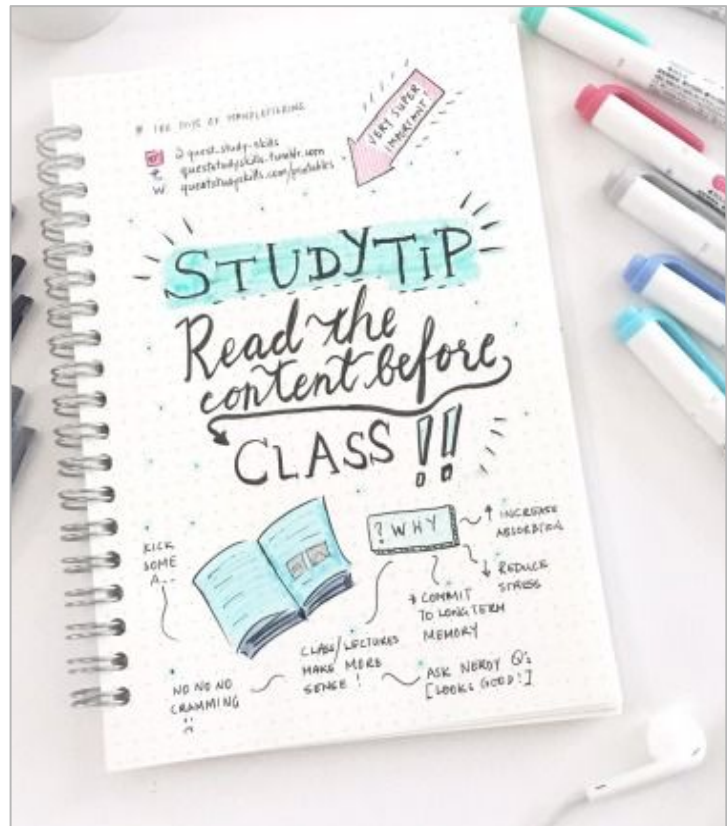 # 100 DAYS OF HANDLETTERING
@quest.study.skills
queststudyskills.tumblr.com
W queststudyskills.com/printables
VERY SUPER
IMPORTANT!
STUDY TIP
Read the
content before
CLASS!!
? WHY
↑ INCREASE
ABSORBTION
↓ REDUCE
STRESS
→ COMMIT
TO LONG TERM
MEMORY
KICK
SOME
A...
CLASS/LECTURES
MAKE MORE
SENSE!
ASK NERDY Q's
[LOOKS GOOD!]
NO NO NO
CRAMMING
!!